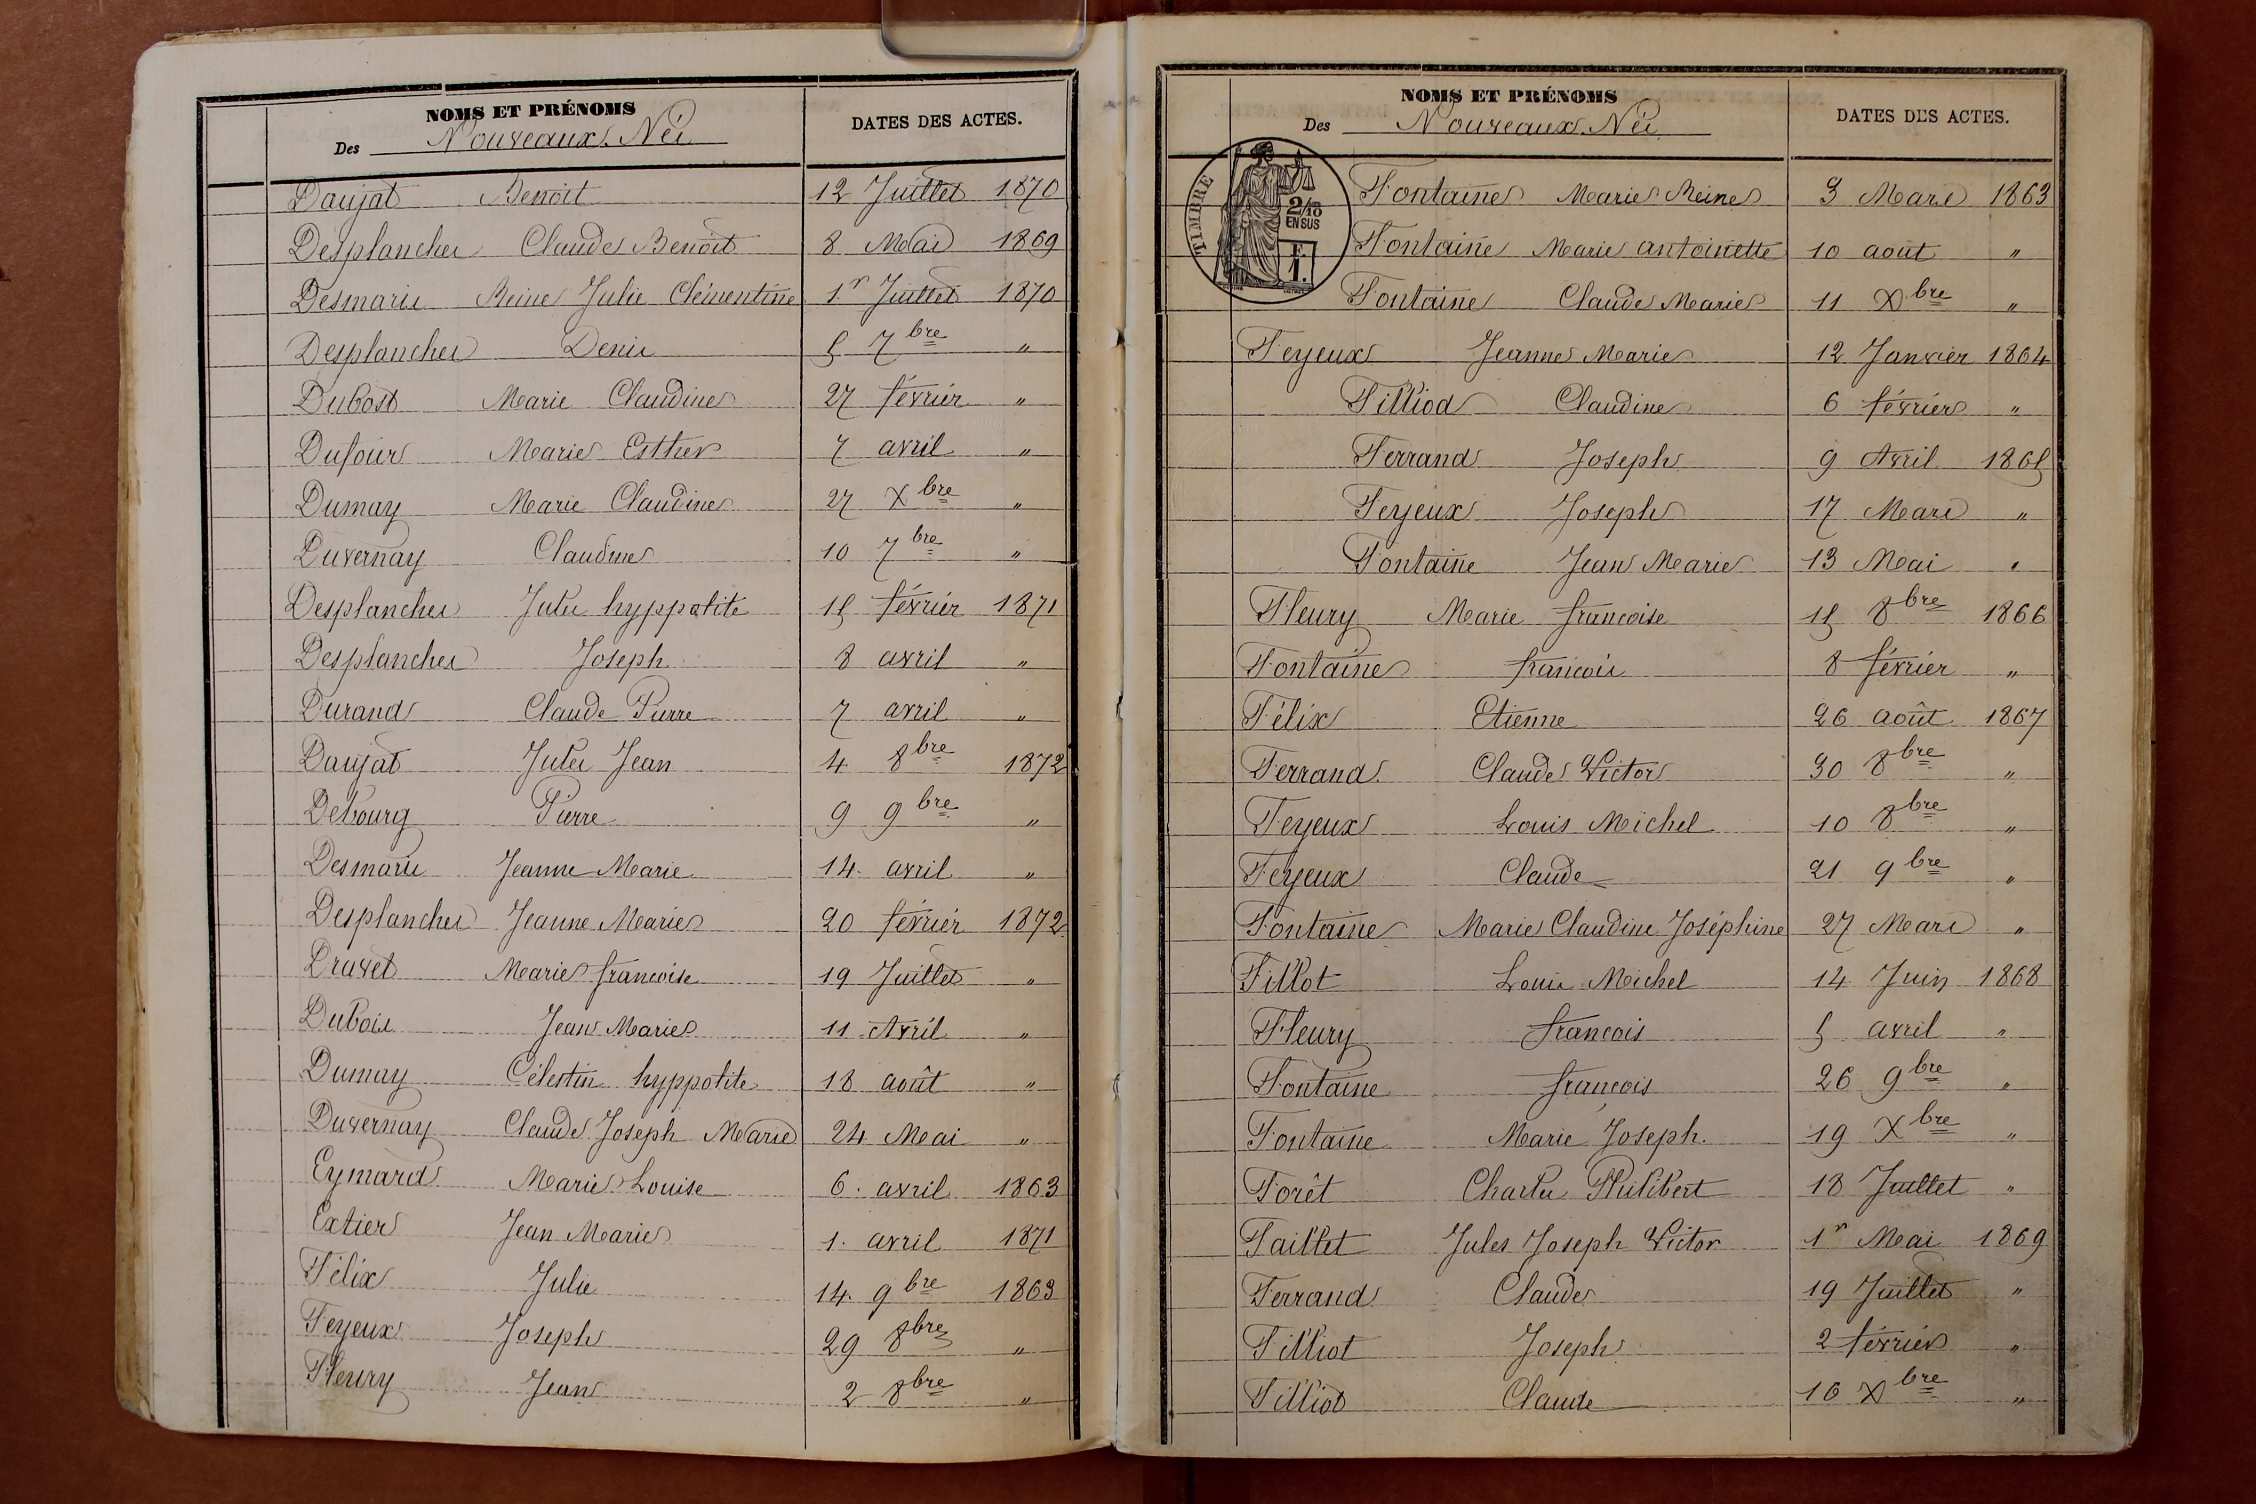 NOMS ET PRÉNOMS
Des Nouveaux. Nés
DATES DES ACTES.
Daujat Benoit 12 Juillet 1870
Desplanches Claude Benoit 8 Mai 1869
Desmaris Reine Julie Clémentine 1.r Juillet 1870
Desplanches Denis 5 7bre "
Dubost Marie Claudine 27 février "
Dufour Marie Esther 7 avril "
Dumay Marie Claudine 27 Xbre "
Duvernay Claudine 10 7bre "
Desplanches Jules hyppolite 15 février 1871
Desplanches Joseph 8 avril "
Durand Claude Pierre 7 avril "
Daujat Jules Jean 4 8bre 1872
Debourg Pierre 9 9bre "
Desmaris Jeanne Marie 14. avril "
Desplanches Jeanne Marie 20 février 1872
Druvet Marie francoise 19 Juillet "
Dubois Jean Marie 11 Avril "
Dumay Célestin hyppolite 18 août "
Duvernay Claude Joseph Marie 24 Mai "
Eymard Marie Louise 6. avril 1863
Extier Jean Marie 1. avril 1871
Félix Julie 14. 9bre 1863
Feyeux Joseph 29 8bre "
Fleury Jean 2 8bre "
NOMS ET PRÉNOMS
Des Nouveaux. Nés
DATES DES ACTES.
TIMBRE
2/10
EN SUS
F.
1.
Fontaine Marie Reine 3 Mars 1863
Fontaine Marie antoinette 10 aout "
Fontaine Claude Marie 11 Xbre "
Feyeux Jeanne Marie 12 Janvier 1864
Filliod Claudine 6 février "
Ferrand Joseph 9 Avril 1865
Feyeux Joseph 17 Mars "
Fontaine Jean Marie 13 Mai "
Fleury Marie francoise 15 8bre 1866
Fontaine francois 8 février "
Félix Etienne 26 août 1867
Ferrand Claude Victor 30 8bre "
Feyeux Louis Michel 10 8bre "
Feyeux Claude 21 9bre "
Fontaine Marie Claudine Joséphine 27 Mars "
Fillot Louis Michel 14 Juin 1868
Fleury francois 5 avril "
Fontaine francois 26 9bre "
Fontaine Marie Joseph. 19 Xbre "
Forêt Charles Philibert 18 Juillet "
Faillet Jules Joseph Victor 1r Mai 1869
Ferrand Claude 19 Juillet "
Filliot Joseph 2 février "
Filliot Claude 16 Xbre "